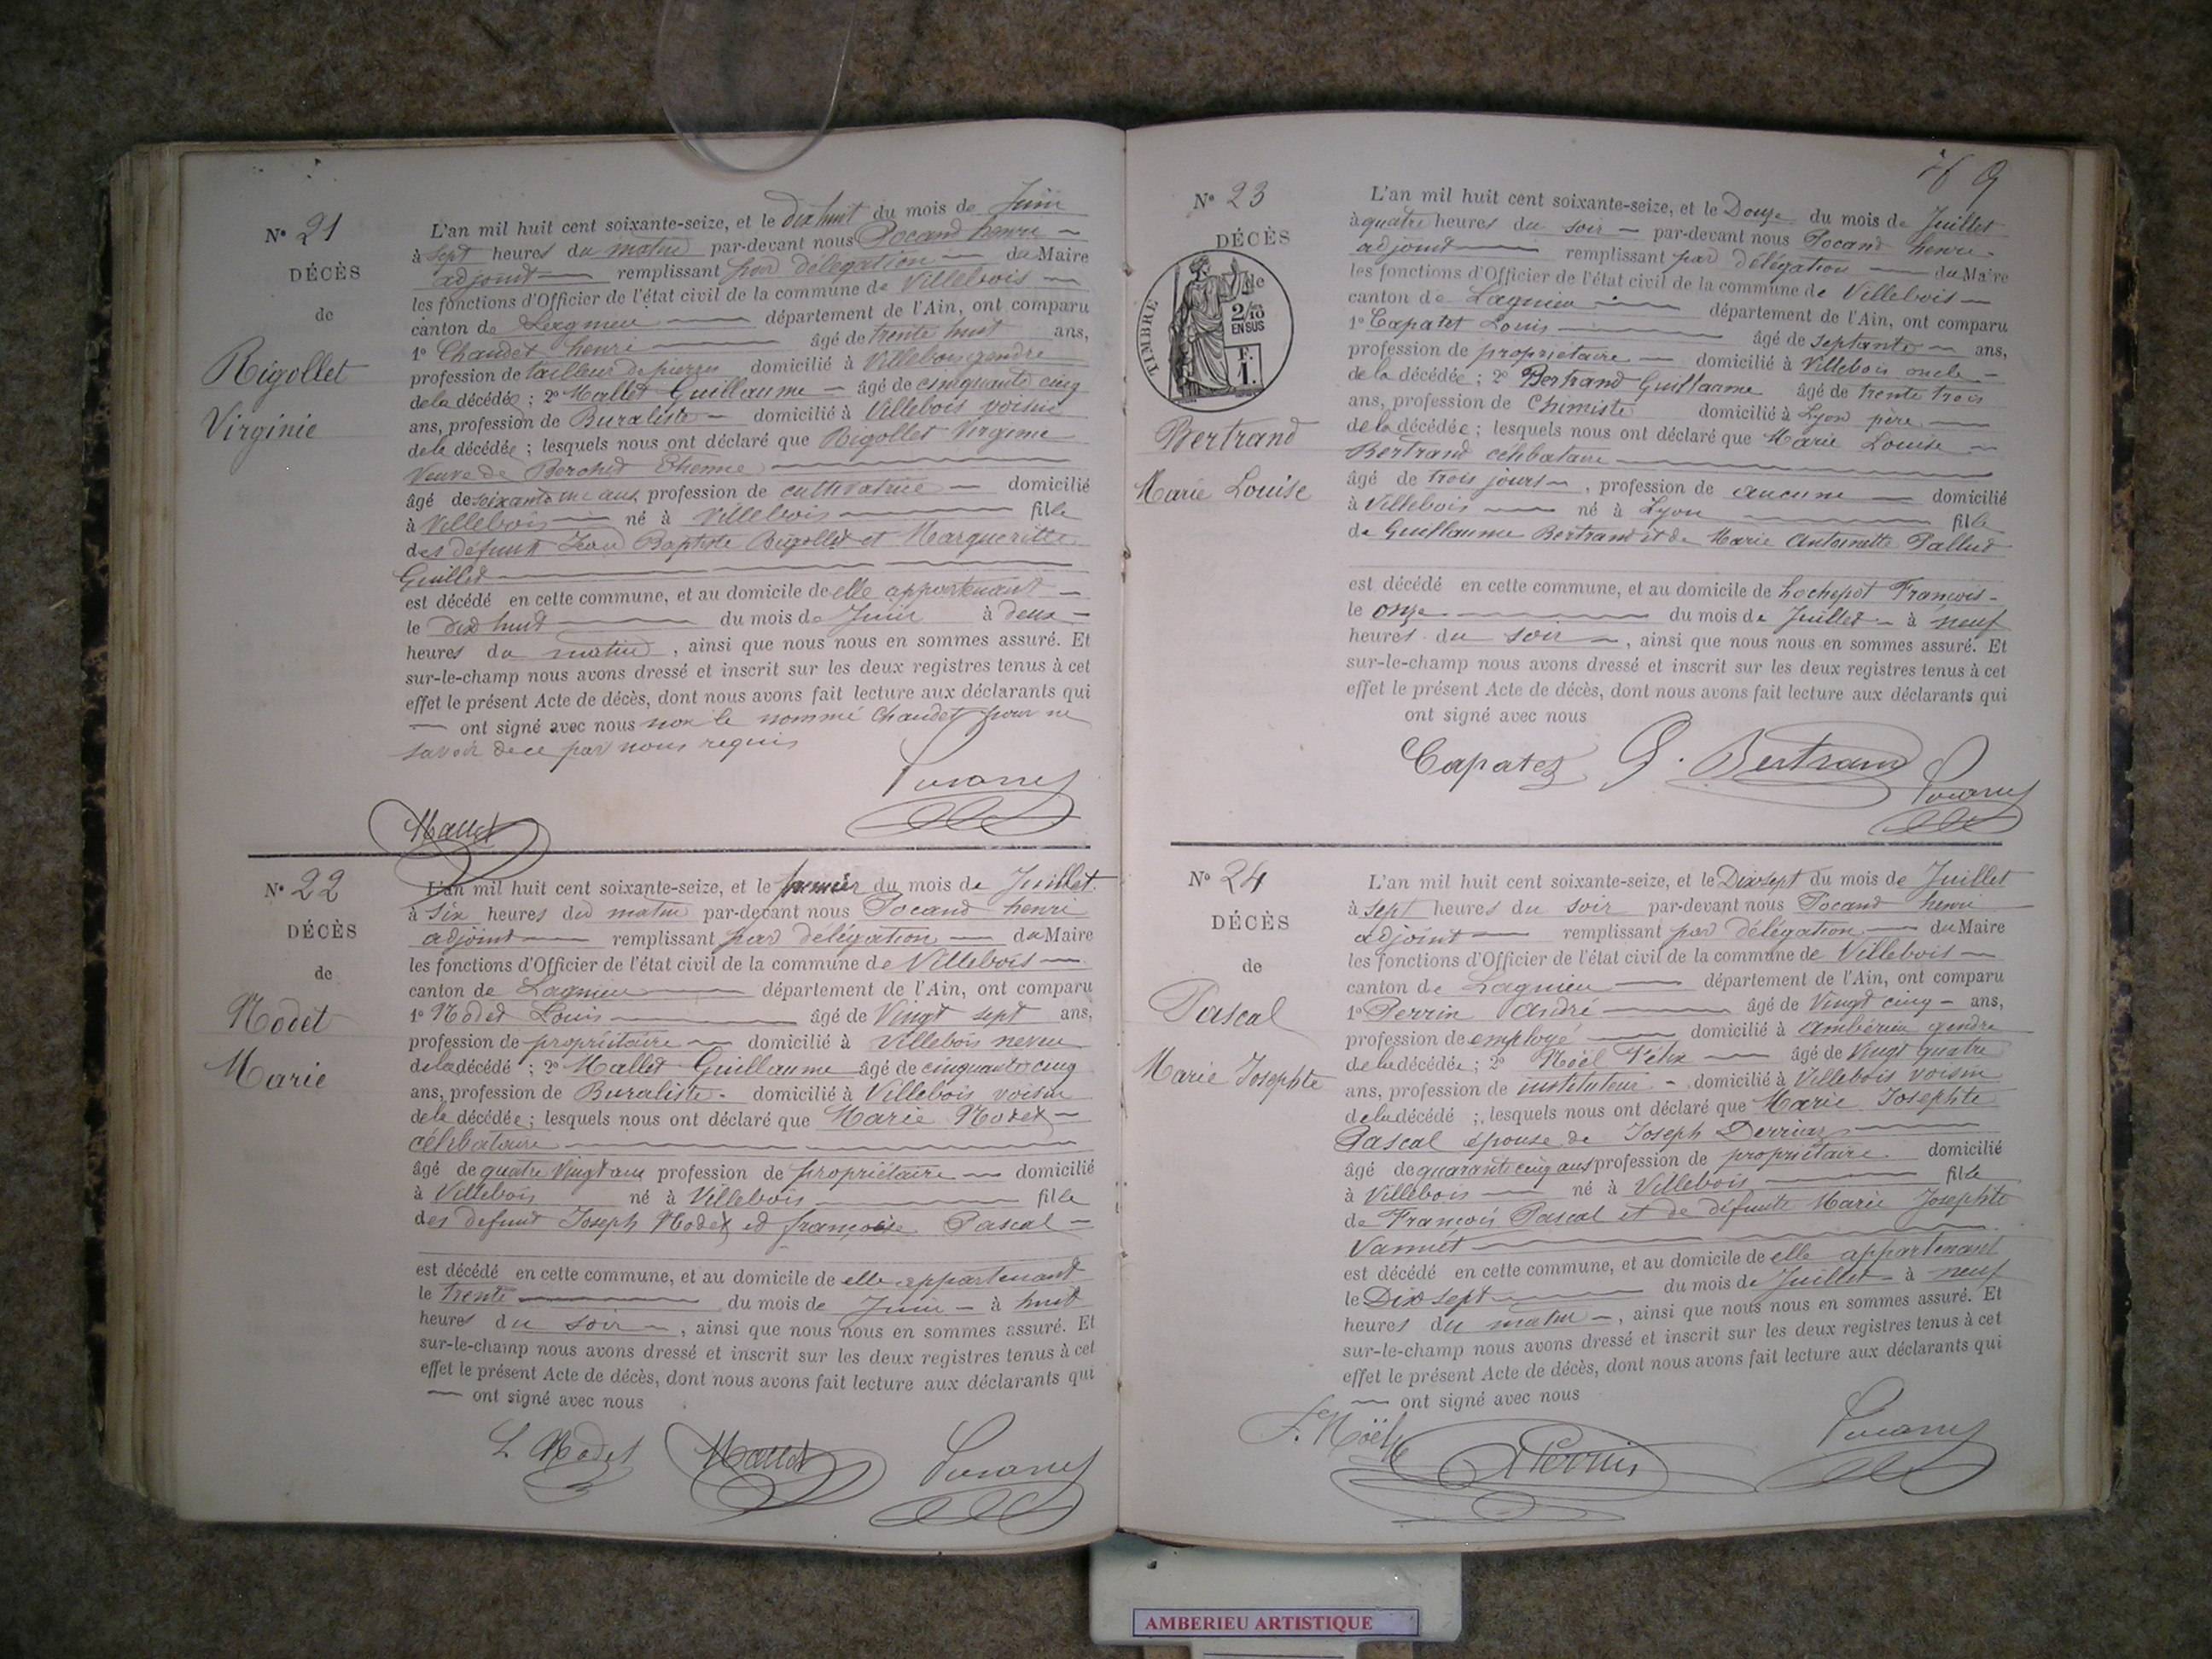 N° 21
DÉCÈS
de
Rigollet
Virginie
L'an mil huit cent soixante-seize, et le dix huit du mois de Juin
à sept heures du matin par-devant nous Pocard henri
adjoint remplissant par délégation du Maire
les fonctions d'Officier de l'état civil de la commune de Villebois
canton de Lagnieu département de l'Ain, ont comparu
1° Chaudet henri âgé de trente huit ans,
profession de tailleur de pierres domicilié à Villebois gendre
de la décédée ; 2° Mallet Guillaume âgé de cinquante cinq
ans, profession de Buraliste domicilié à Villebois voisin
de la décédée ; lesquels nous ont déclaré que Rigollet Virginie
Veuve de Etienne
âgé de soixante un ans profession de cultivatrice domicilié
à Villebois né à Villebois fille
des défunt Jean Baptiste Rigollet et Margueritte
Guillet
est décédé en cette commune, et au domicile de elle appartenant
le dix huit du mois de Juin à deux
heures du matin, ainsi que nous nous en sommes assuré. Et
sur-le-champ nous avons dressé et inscrit sur les deux registres tenus à cet
effet le présent Acte de décès, dont nous avons fait lecture aux déclarants qui
ont signé avec nous non le nommé Chaudet pour ne
savoir de ce par nous requis
Mallet
N° 22
DÉCÈS
de
Nodet
Marie
L'an mil huit cent soixante-seize, et le premier du mois de Juillet
à six heures du matin par-devant nous Pocard henri
adjoint remplissant par délégation du Maire
les fonctions d'Officier de l'état civil de la commune de Villebois
canton de Lagnieu département de l'Ain, ont comparu
1° Nodet Louis âgé de Vingt sept ans,
profession de propriétaire domicilié à Villebois neveu
de la décédé ; 2° Mallet Guillaume âgé de cinquante cinq
ans, profession de Buraliste domicilié à Villebois voisin
de la décédée ; lesquels nous ont déclaré que Marie Nodet
célibataire
âgé de quatre vingt ans profession de propriétaire domicilié
à Villebois né à Villebois fille
des defunt Joseph Nodet et françoise Pascal
est décédé en cette commune, et au domicile de elle appartenant
le trente du mois de Juin à huit
heures du soir, ainsi que nous nous en sommes assuré. Et
sur-le-champ nous avons dressé et inscrit sur les deux registres tenus à cet
effet le présent Acte de décès, dont nous avons fait lecture aux déclarants qui
ont signé avec nous
L Nodet Mallet
9
N° 23
DÉCÈS
TIMBRE
2/10
EN SUS
F.
1.
Bertrand
Marie Louise
L'an mil huit cent soixante-seize, et le Douze du mois de Juillet
à quatre heures du soir par-devant nous Pocard henri
adjoint remplissant par délégation du Maire
les fonctions d'Officier de l'état civil de la commune de Villebois
canton de Lagnieu département de l'Ain, ont comparu
1° Capatet Louis âgé de septante ans,
profession de propriétaire domicilié à Villebois oncle
de la décédée ; 2° Bertrand Guillaume âgé de trente trois
ans, profession de Chimiste domicilié à Lyon père
de la décédée ; lesquels nous ont déclaré que Marie Louise
Bertrand célibataire
âgé de trois jours, profession de aucune domicilié
à Villebois né à Lyon fille
de Guillaume Bertrand et de Marie Antoinette Pallud
est décédé en cette commune, et au domicile de hochepot François
le onze du mois de Juillet à neuf
heures du soir, ainsi que nous nous en sommes assuré. Et
sur-le-champ nous avons dressé et inscrit sur les deux registres tenus à cet
effet le présent Acte de décès, dont nous avons fait lecture aux déclarants qui
ont signé avec nous
Capatet G. Bertrand
N° 24
DÉCÈS
de
Pascal
Marie Josephte
L'an mil huit cent soixante-seize, et le Dix sept du mois de Juillet
à sept heures du soir par-devant nous Pocard henri
adjoint remplissant par délégation du Maire
les fonctions d'Officier de l'état civil de la commune de Villebois
canton de Lagnieu département de l'Ain, ont comparu
1° Perrin André âgé de Vingt cinq ans,
profession de employé domicilié à ambérieu gendre
de la décédée ; 2° Noël Félix âgé de Vingt quatre
ans, profession de instituteur domicilié à Villebois voisin
de la décédé ; lesquels nous ont déclaré que Marie Josephte
Pascal épouse de Joseph Derriaz
âgé de quarante cinq ans profession de propriétaire domicilié
à Villebois né à Villebois fille
de François Pascal et de défunte Marie Josephte
Vannet
est décédé en cette commune, et au domicile de elle appartenant
le Dix sept du mois de Juillet à neuf
heures du matin, ainsi que nous nous en sommes assuré. Et
sur-le-champ nous avons dressé et inscrit sur les deux registres tenus à cet
effet le présent Acte de décès, dont nous avons fait lecture aux déclarants qui
ont signé avec nous
F. Noël Perrin
AMBERIEU ARTISTIQUE